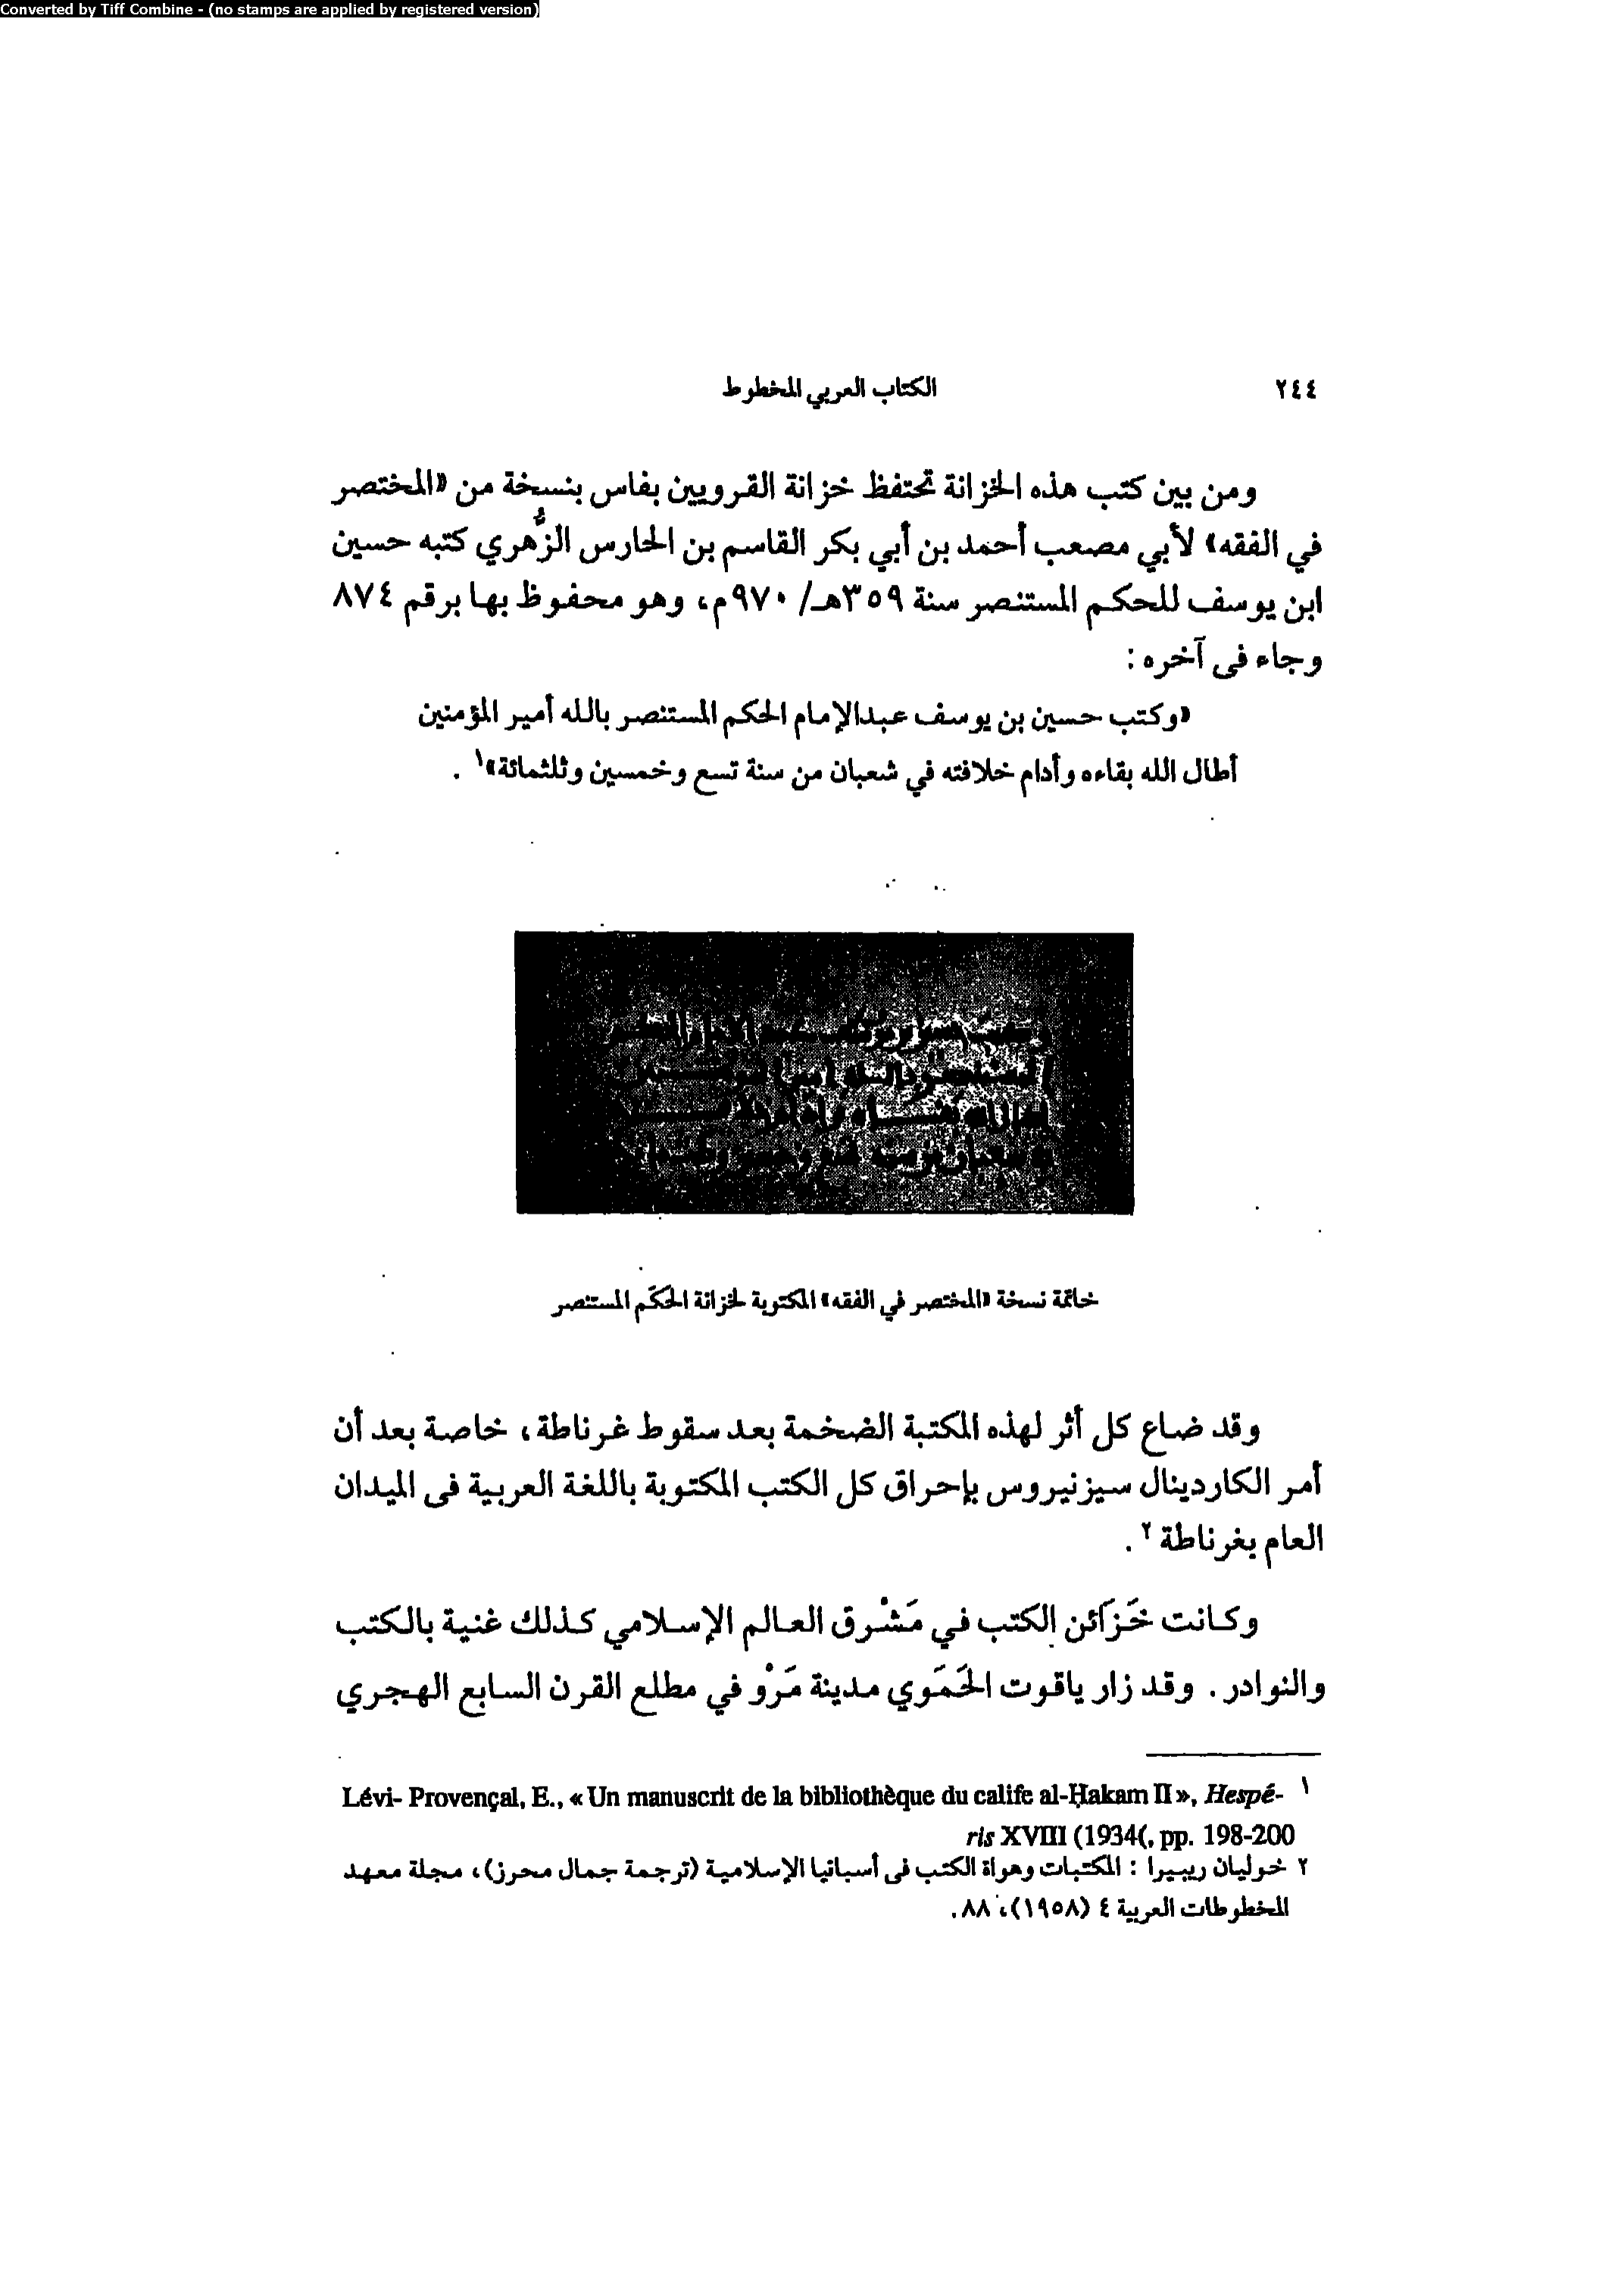 Converted by Tiff Combine - (no stamps are applied by registered version)
٢٤٤ الكتاب العربي المخطوط
ومن بين كتب هذه الخزانة تحتفظ خزانة القرويين بفاس بنسخة من «المختصر
في الفقه» لأبي مصعب أحمد بن أبي بكر القاسم بن الحارس الزُّهري كتبه حسين
ابن يوسف للحكم المستنصر سنة ٣٥٩هـ/ ٩٧٠م، وهو محفوظ بها برقم ٨٧٤
وجاء فى آخره :
«وكتب حسين بن يوسف عبدالإمام الحكم المستنصر بالله أمير المؤمنين
أطال الله بقاءه وأدام خلافته في شعبان من سنة تسع وخمسين وثلثمائة»١ .
خاتمة نسخة «المختصر في الفقه» المكتوبة لخزانة الحكَم المستنصر
وقد ضاع كل أثر لهذه المكتبة الضخمة بعد سقوط غرناطة، خاصة بعد أن
أمر الكاردينال سيزنيروس بإحراق كل الكتب المكتوبة باللغة العربية فى الميدان
العام بغرناطة ٢ .
وكانت خَزَائن الكتب في مَشْرق العالم الإسلامي كذلك غنية بالكتب
والنوادر. وقد زار ياقوت الحَمَوي مدينة مَرْو في مطلع القرن السابع الهجري
١ Lévi- Provençal, E., « Un manuscrit de la bibliothèque du calife al-Ḥakam II », Hespé-
ris XVIII (1934(, pp. 198-200
٢ خوليان ريبيرا : المكتبات وهواة الكتب فى أسبانيا الإسلامية (ترجمة جمال محرز)، مجلة معهد
المخطوطات العربية ٤ (١٩٥٨)، ٨٨.